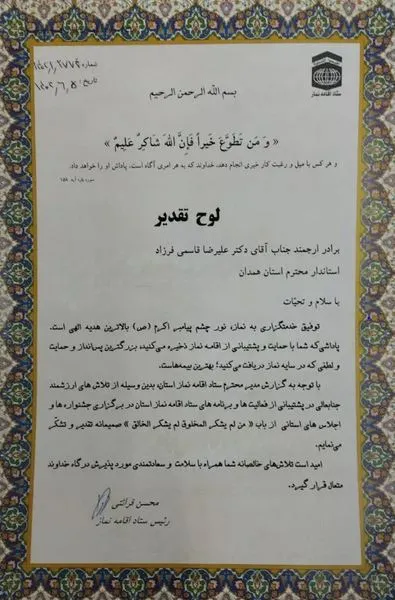 ستاد اقامه نماز
شماره
تاریخ:
بسم الله الرحمن الرحیم
« وَ مَن تَطَوَّعَ خَیراً فَإِنَّ اللهَ شَاکِرٌ عَلِیمٌ »
و هر کس با میل و رغبت کار خیری انجام دهد، خداوند که به هر امری آگاه است، پاداش او را خواهد داد.
سوره بقره آیه ۱۵۸
لوح تقدیر
برادر ارجمند جناب آقای دکتر علیرضا قاسمی فرزاد
استاندار محترم استان همدان
با سلام و تحیّات
توفیق خدمتگزاری به نماز، نور چشم پیامبر اکرم (ص) بالاترین هدیه الهی است.
پاداشی‌که شما با حمایت و پشتیبانی از اقامه نماز ذخیره می‌کنید، بزرگترین پس‌انداز و حمایت
و لطفی که در سایه نماز دریافت می‌کنید؛ بهترین بیمه‌هاست.
با توجه به گزارش مدیر محترم ستاد اقامه نماز استان، بدین وسیله از تلاش های ارزشمند
جنابعالی در پشتیبانی از فعالیت ها و برنامه های ستاد اقامه نماز استان در برگزاری جشنواره ها و
اجلاس های استانی از باب « من لم یشکر المخلوق لم یشکر الخالق » صمیمانه تقدیر و تشکّر
می‌نمایم.
امید است تلاش‌های خالصانه شما همراه با سلامت و سعادتمندی مورد پذیرش درگاه خداوند
متعال قرار گیرد.
محسن قرائتی
رئیس ستاد اقامه نماز